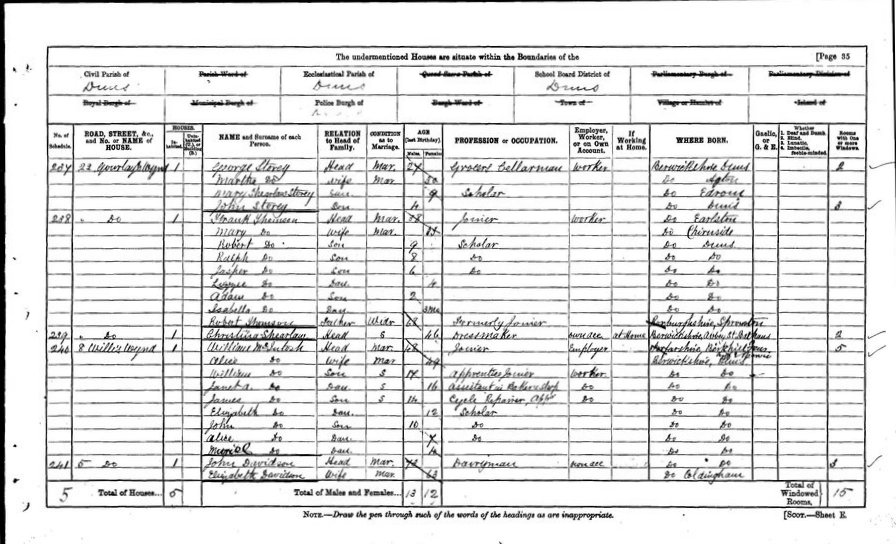 The undermentioned Houses are situate within the Boundaries of the [Page 35
Civil Parish of Parish Ward of Ecclesiastical Parish of Quoad Sacra Parish of School Board District of Parliamentary Burgh of Parliamentary Division of
Duns Duns Duns
Royal Burgh of Municipal Burgh of Police Burgh of Burgh Ward of Town of Village or Hamlet of Island of
No. of Schedule. ROAD, STREET, &c., and No. or NAME of HOUSE. HOUSES. Inhabited. Uninhabited (U.), or Building (B.) NAME and Surname of each Person. RELATION to Head of Family. CONDITION as to Marriage. AGE (last Birthday). Males. Females. PROFESSION or OCCUPATION. Employer, Worker, or on Own Account. If Working at Home. WHERE BORN. Gaelic, or G. & E. Whether 1. Deaf and Dumb 2. Blind. 3. Lunatic. 4. Imbecile, feeble-minded. Rooms with One or more Windows.
237 23 Gourlay's Wynd 1 George Storey Head Mar. Grocers Cellarman worker Berwickshire Duns 2
Martha Do wife Mar 30 Do
Mary Shearlaw Storey 9 Scholar Do Edrom
John Storey Son 4 Do Duns 3
238 " Do 1 Frank Thomson Head Mar. 38 Joiner worker Do Earlston
Mary Do Wife Mar. Do Chirnside
Robert Do Son 9 Scholar Do Duns
Ralph Do Son 8 Do Do Do
Jasper Do Son 6 Do Do Do
Lizzie Do Dau 4 Do Do
Adam Do Son 2 Do Do
Isabella Do Dau 3 Mo Do Do
Robert Thomson Father Widr 68 Formerly Joiner Roxburghshire, Sprouston
239 " Do 1 Christina Shearlaw Head S 46 Dressmaker own acc at Home Berwickshire, 2
240 8 Willis Wynd 1 William McIntosh Head Mar 48 Joiner Employer 5
Alice Do Wife Mar 49 Berwickshire, Duns
William Do Son S 17 Apprentice Joiner worker Do Do
Janet A. Do Dau S 16 Assistant in Bakers shop Do Do Do
James Do Son S 14 Cycle Repairer, App Do Do Do
Elizabeth Do Dau. 12 Scholar Do Do
John Do Son 10 Do Do Do
Alice Do Dau 7 Do Do Do
Muriel Do Dau Do Do
241 5 Do 1 John Davidson Head Mar. 73 Dairyman own acc Do Do 3
Elizabeth Davidson Wife Mar 63 Do Coldingham
5 Total of Houses... 5 Total of Males and Females... 13 12 Total of Windowed Rooms, 15
NOTE.—Draw the pen through such of the words of the headings as are inappropriate. [SCOT.—Sheet E.